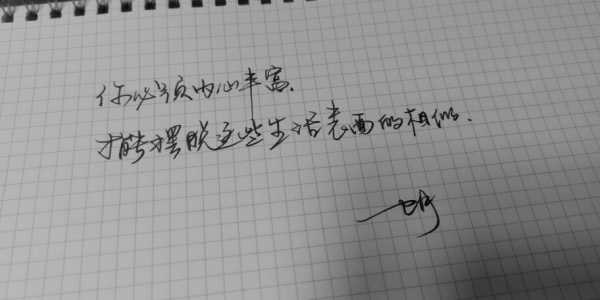 你必须内心丰富.
才能摆脱这些生活表面的相似.